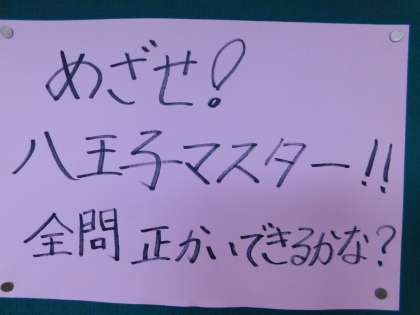 めざせ!
八王子マスター!!
全問 正かいできるかな?